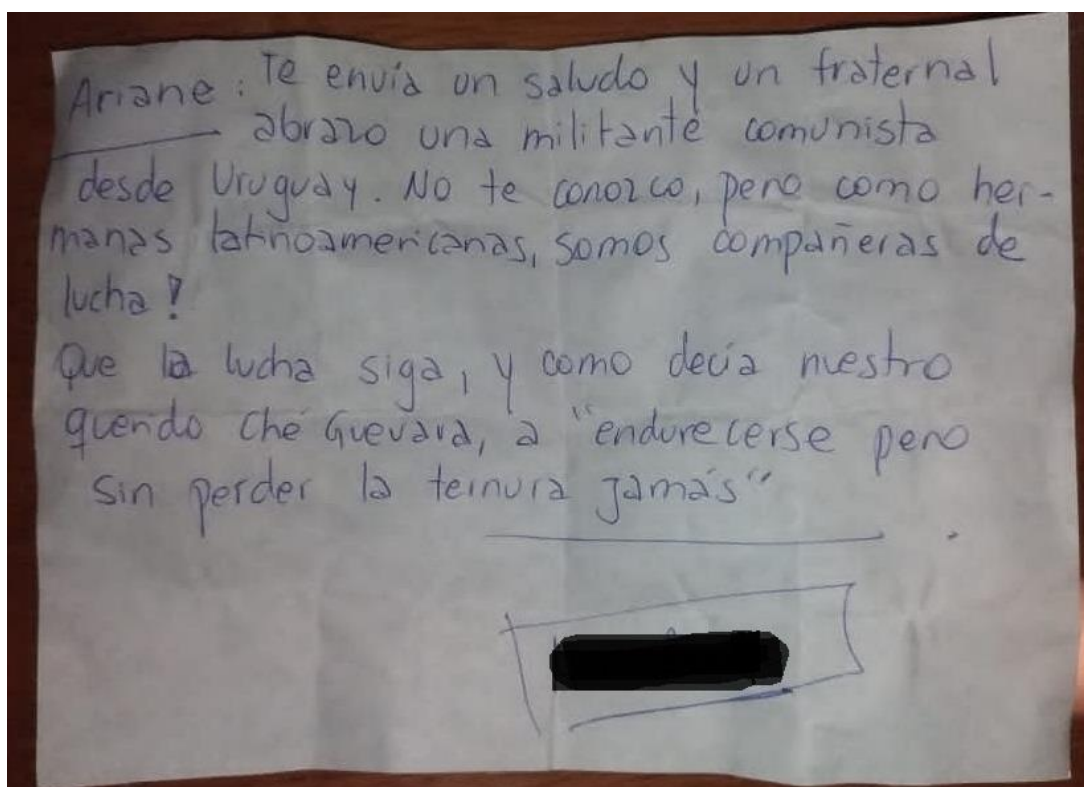 Ariane: Te envía un saludo y un fraternal
abrazo una militante comunista
desde Uruguay. No te conozco, pero como her-
manas latinoamericanas, somos compañeras de
lucha!
Que la lucha siga, y como decía nuestro
querido Ché Guevara, a "endurecerse pero
sin perder la ternura jamás"